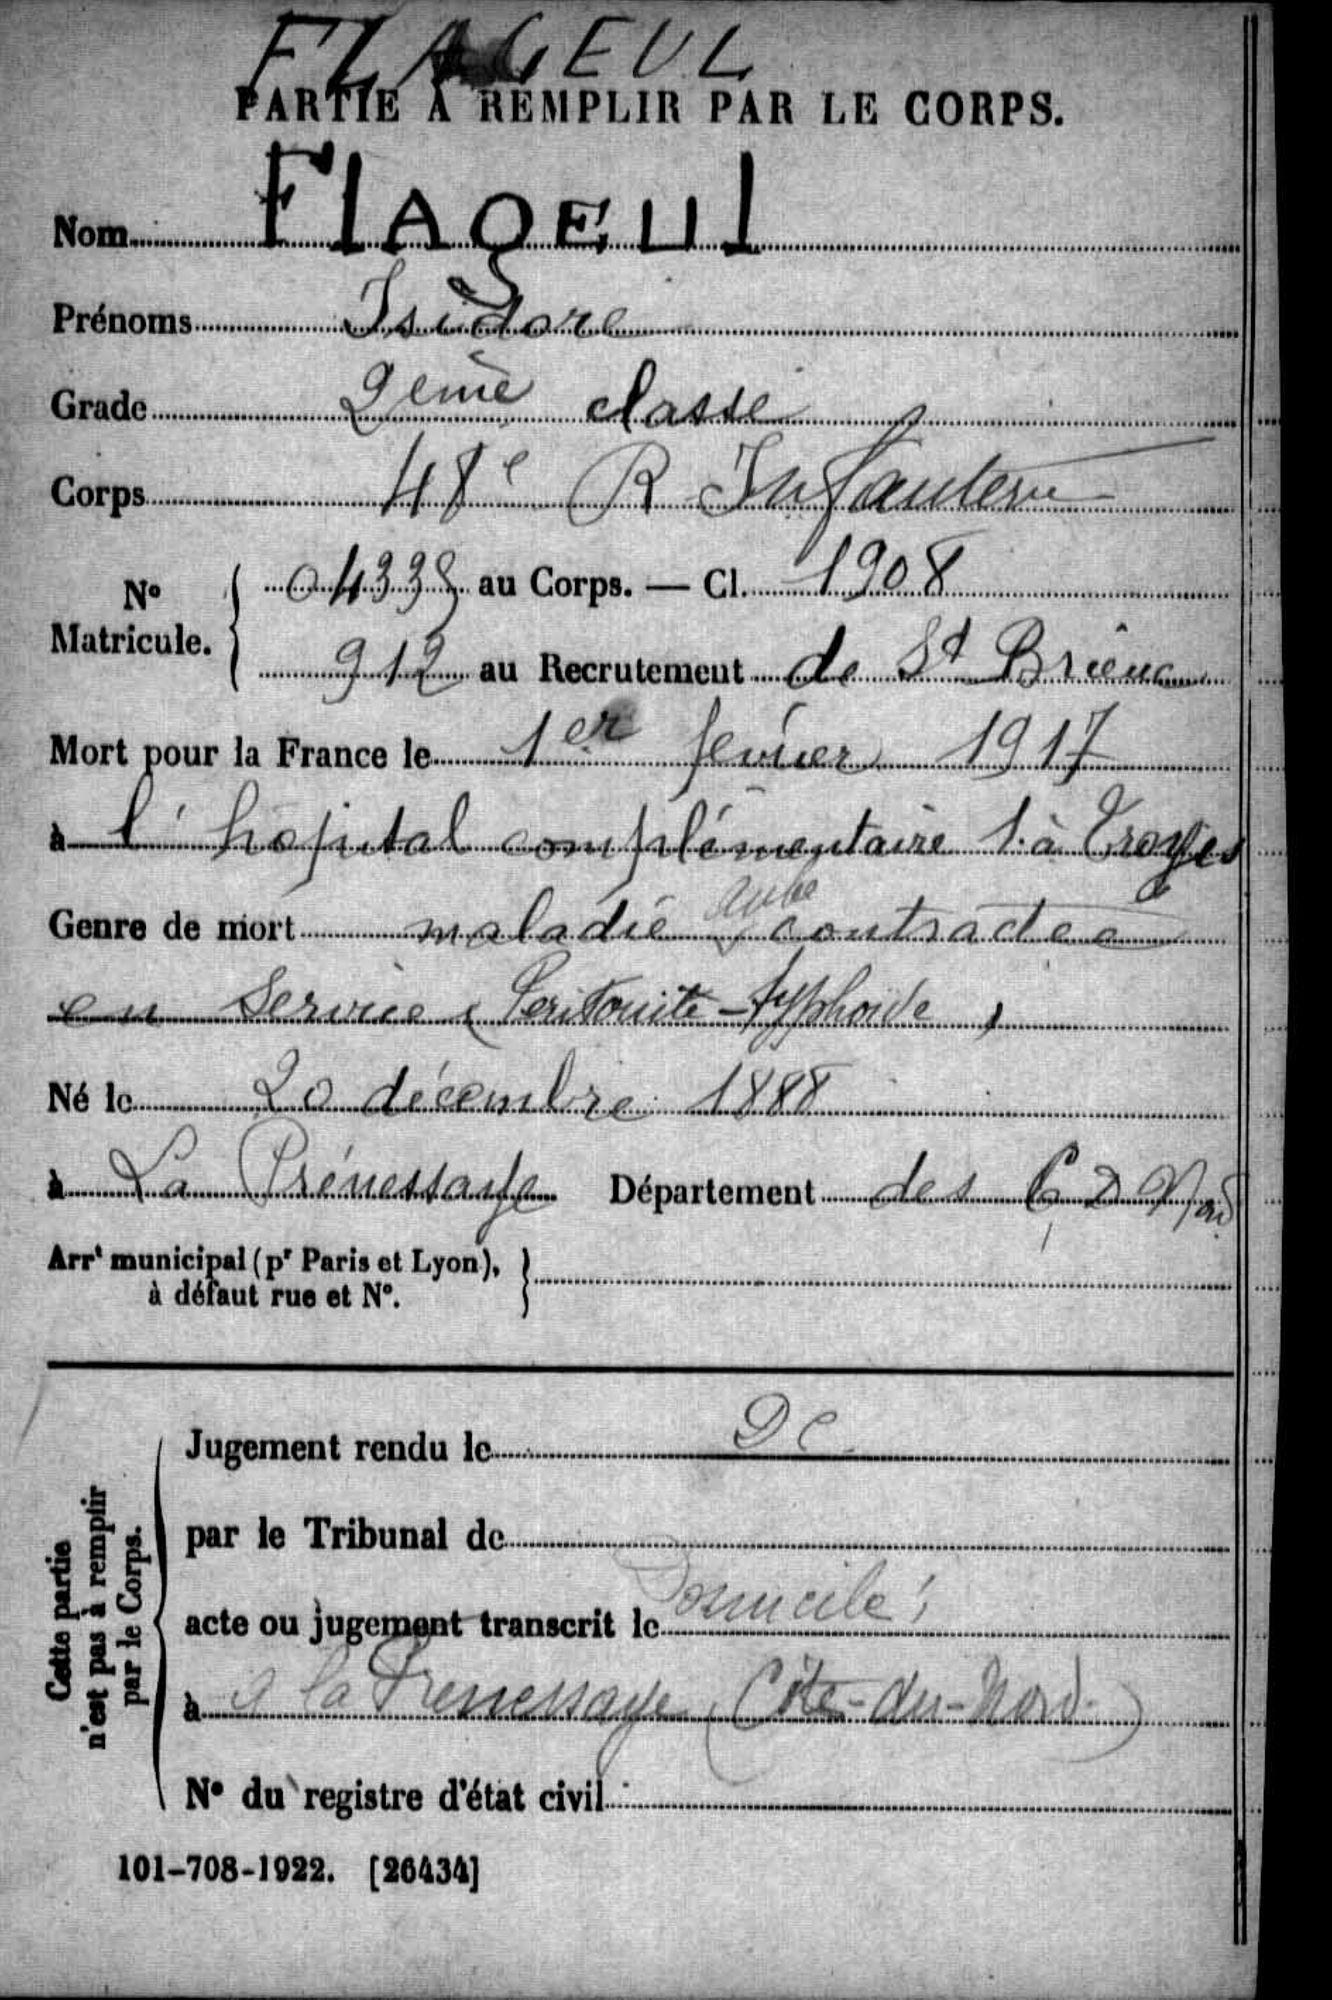 FLAGEUL
PARTIE À REMPLIR PAR LE CORPS.
Nom FlAgEUl
Prénoms Isidore
Grade 2ème classe
Corps 48e R Infanterie
No Matricule. { 04338 au Corps. — Cl. 1908
912 au Recrutement de St Brieuc
Mort pour la France le 1er fevrier 1917
à l'hôpital complémentaire 1. à Troyes
Aube
Genre de mort maladie contractée
en Service (Peritonite - typhoide)
Né le 20 décembre 1888
à La Prénessaye Département des C D Nord
Arrt municipal (pr Paris et Lyon), à défaut rue et No. }
Cette partie n'est pas à remplir par le Corps.
Jugement rendu le DC
par le Tribunal de
acte ou jugement transcrit le Domicile:
à à la Prenessaye (Côte-du-Nord)
No du registre d'état civil
101-708-1922. [26434]